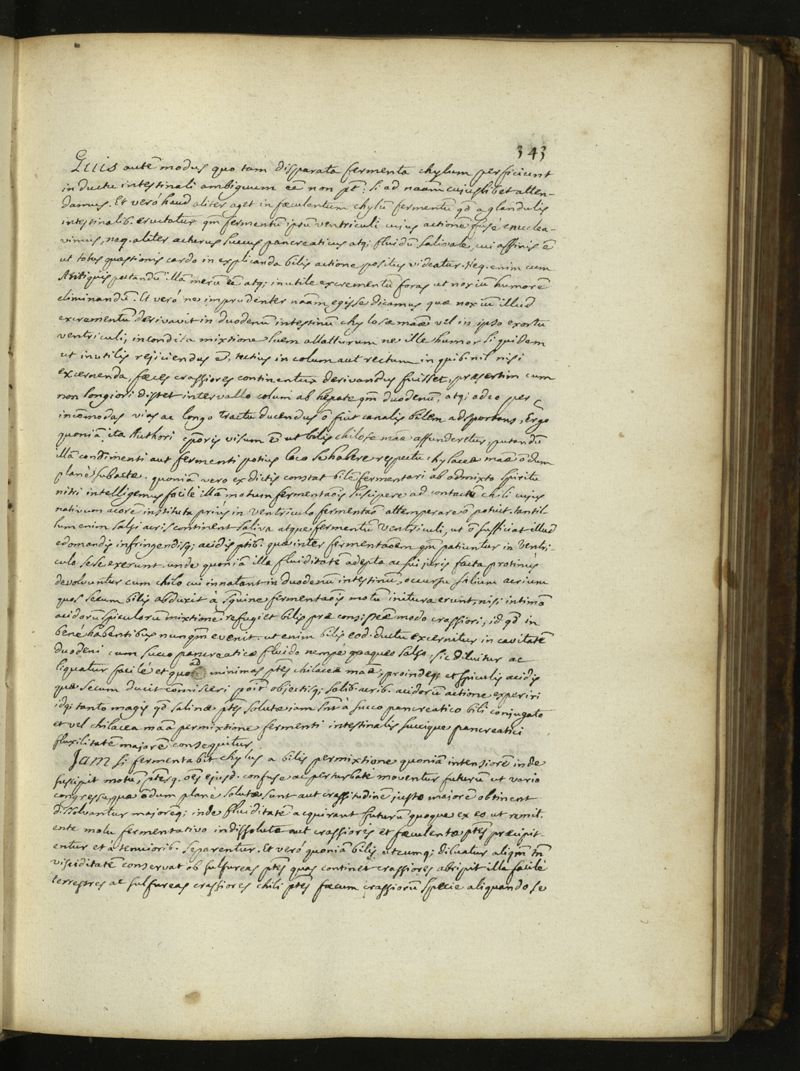 343
Quis autē modus quo tam disparata fermenta chylum perficiunt
in ductu intestinali ambiguum eē non pt: si ad naām cujuslibet atten-
damus. Et verò haud aliter aget in fæculentum chylū fermentū qd a glandulis
intestinalib. eructatur qm̄ fermentū ipsū ventriculi cujus actionē fusè enuclea-
vimus, neq. aliter acturus succus pancreaticus atq; fluidū salivale, cui affinis ē
ut totus quæstionis cardo in explicanda bilis actione positus videatur. Neq. enim cum
Antiquis putandū illā merū eē atq; inutile excrementū foras ut noxiū humorē
eliminandū. Et verò ne imprudenter naām egisse dicamus quæ noxiū illud
excrementū derivavit in duodenū intestinū chylosæ maē vel in ipso exortu
ventriculi, incondita mixtione luem allatturum ne ille humor si quidem
ut inutilis rejiciendus ē, tutius in colum aut rectum in quib. nil nisi
excernenda, fæces crassiores continentur derivandus fuisset, præsertim cum
non longiori distet intervallo colum ab hepate qm̄ duodenū, atq; adeo per
incōmodas vias ac longo tractu ducendus ō fuit canalis bilem adsportans. Ergo
quoniā ita Authori cporis visum ē ut bilis chilosæ maē affunderetur, putandū
illā condimenti aut fermenti potius loco se habere respectu chylaceæ maē ōdum
planè subactæ. quoniā vero ex dictis constat bilē fermentari ab admixto spiritu
nitri intelligemus facilè illā motum fermentaōis suscipere ad contactū chili cujus
nativum acorē instituta prius in ventriculo fermentaō attemperare ō potuit. tantil
lum enim salsi acris continent saliva atque fermentū ventriculi, ut ō sufficiat illud
edomandis infringendisq; acidis ptib. quæ inter fermentaōem qm̄ patiuntur in ventri
culo sese exerunt. unde quoniā illa fluiditatē adepta ac sui juris facta protinus
devolvuntur cum chilo cui innatant in duodenū intestinū, occursu salium acrium
quos secum bilis abduxit à sguine fermentaōis motū initura erunt, nisi intimā
acidorū spiculorū mixtionē refugiet bilis præ consistæ modo crassiori, id qd in
benè habentibus nunqm̄ evenit. ut enim bilis eod. ductu excernitur in cavitatē
duodeni cum succo pancreatico fluido nempè quoque salso, sic diluitur ac
liquatur facilè et quoad minimas ptes chilaceæ maē, proindeq; et spiculis acidis
quæ secum ducit comisceri poīt objectisq; salib. acrib. acidorū actionē experiri
idq; tanto magis qd salinæ ptes solutæ jam sint à succo pancreatico bili conjugato
et vel chilacea maā permixtione fermenti intestinalis succique pancreatici
fluxilitatē majorē consequitur.
Jam si fermentabit chylus a bilis permixtione quoniā intensiorē inde
suscipit motū, ptesq. oēs ejusd. confusè ac perturbatè moventur futurū ut vario
congressu, quæ ādum planè solutæ sunt aut crassitudinē justo majorē obtinent
dissolvantur majorēq; inde fluiditatē acquirant futurū quoque ex eo ut remit-
ente motu fermentativo indissolutæ aut crassiores et fæculentæ ptes præcipit
entur et a tenuiorib. separentur. Et verò quoniā bilis utcumq; diluatur aliqm̄ tn̄
visciditatē conservat ob sulfureas ptes quas continet crassiores abripit illa facilè
terrestres ac sulfureas crassiores chili ptes fæcum crassiorū specie aliquando se